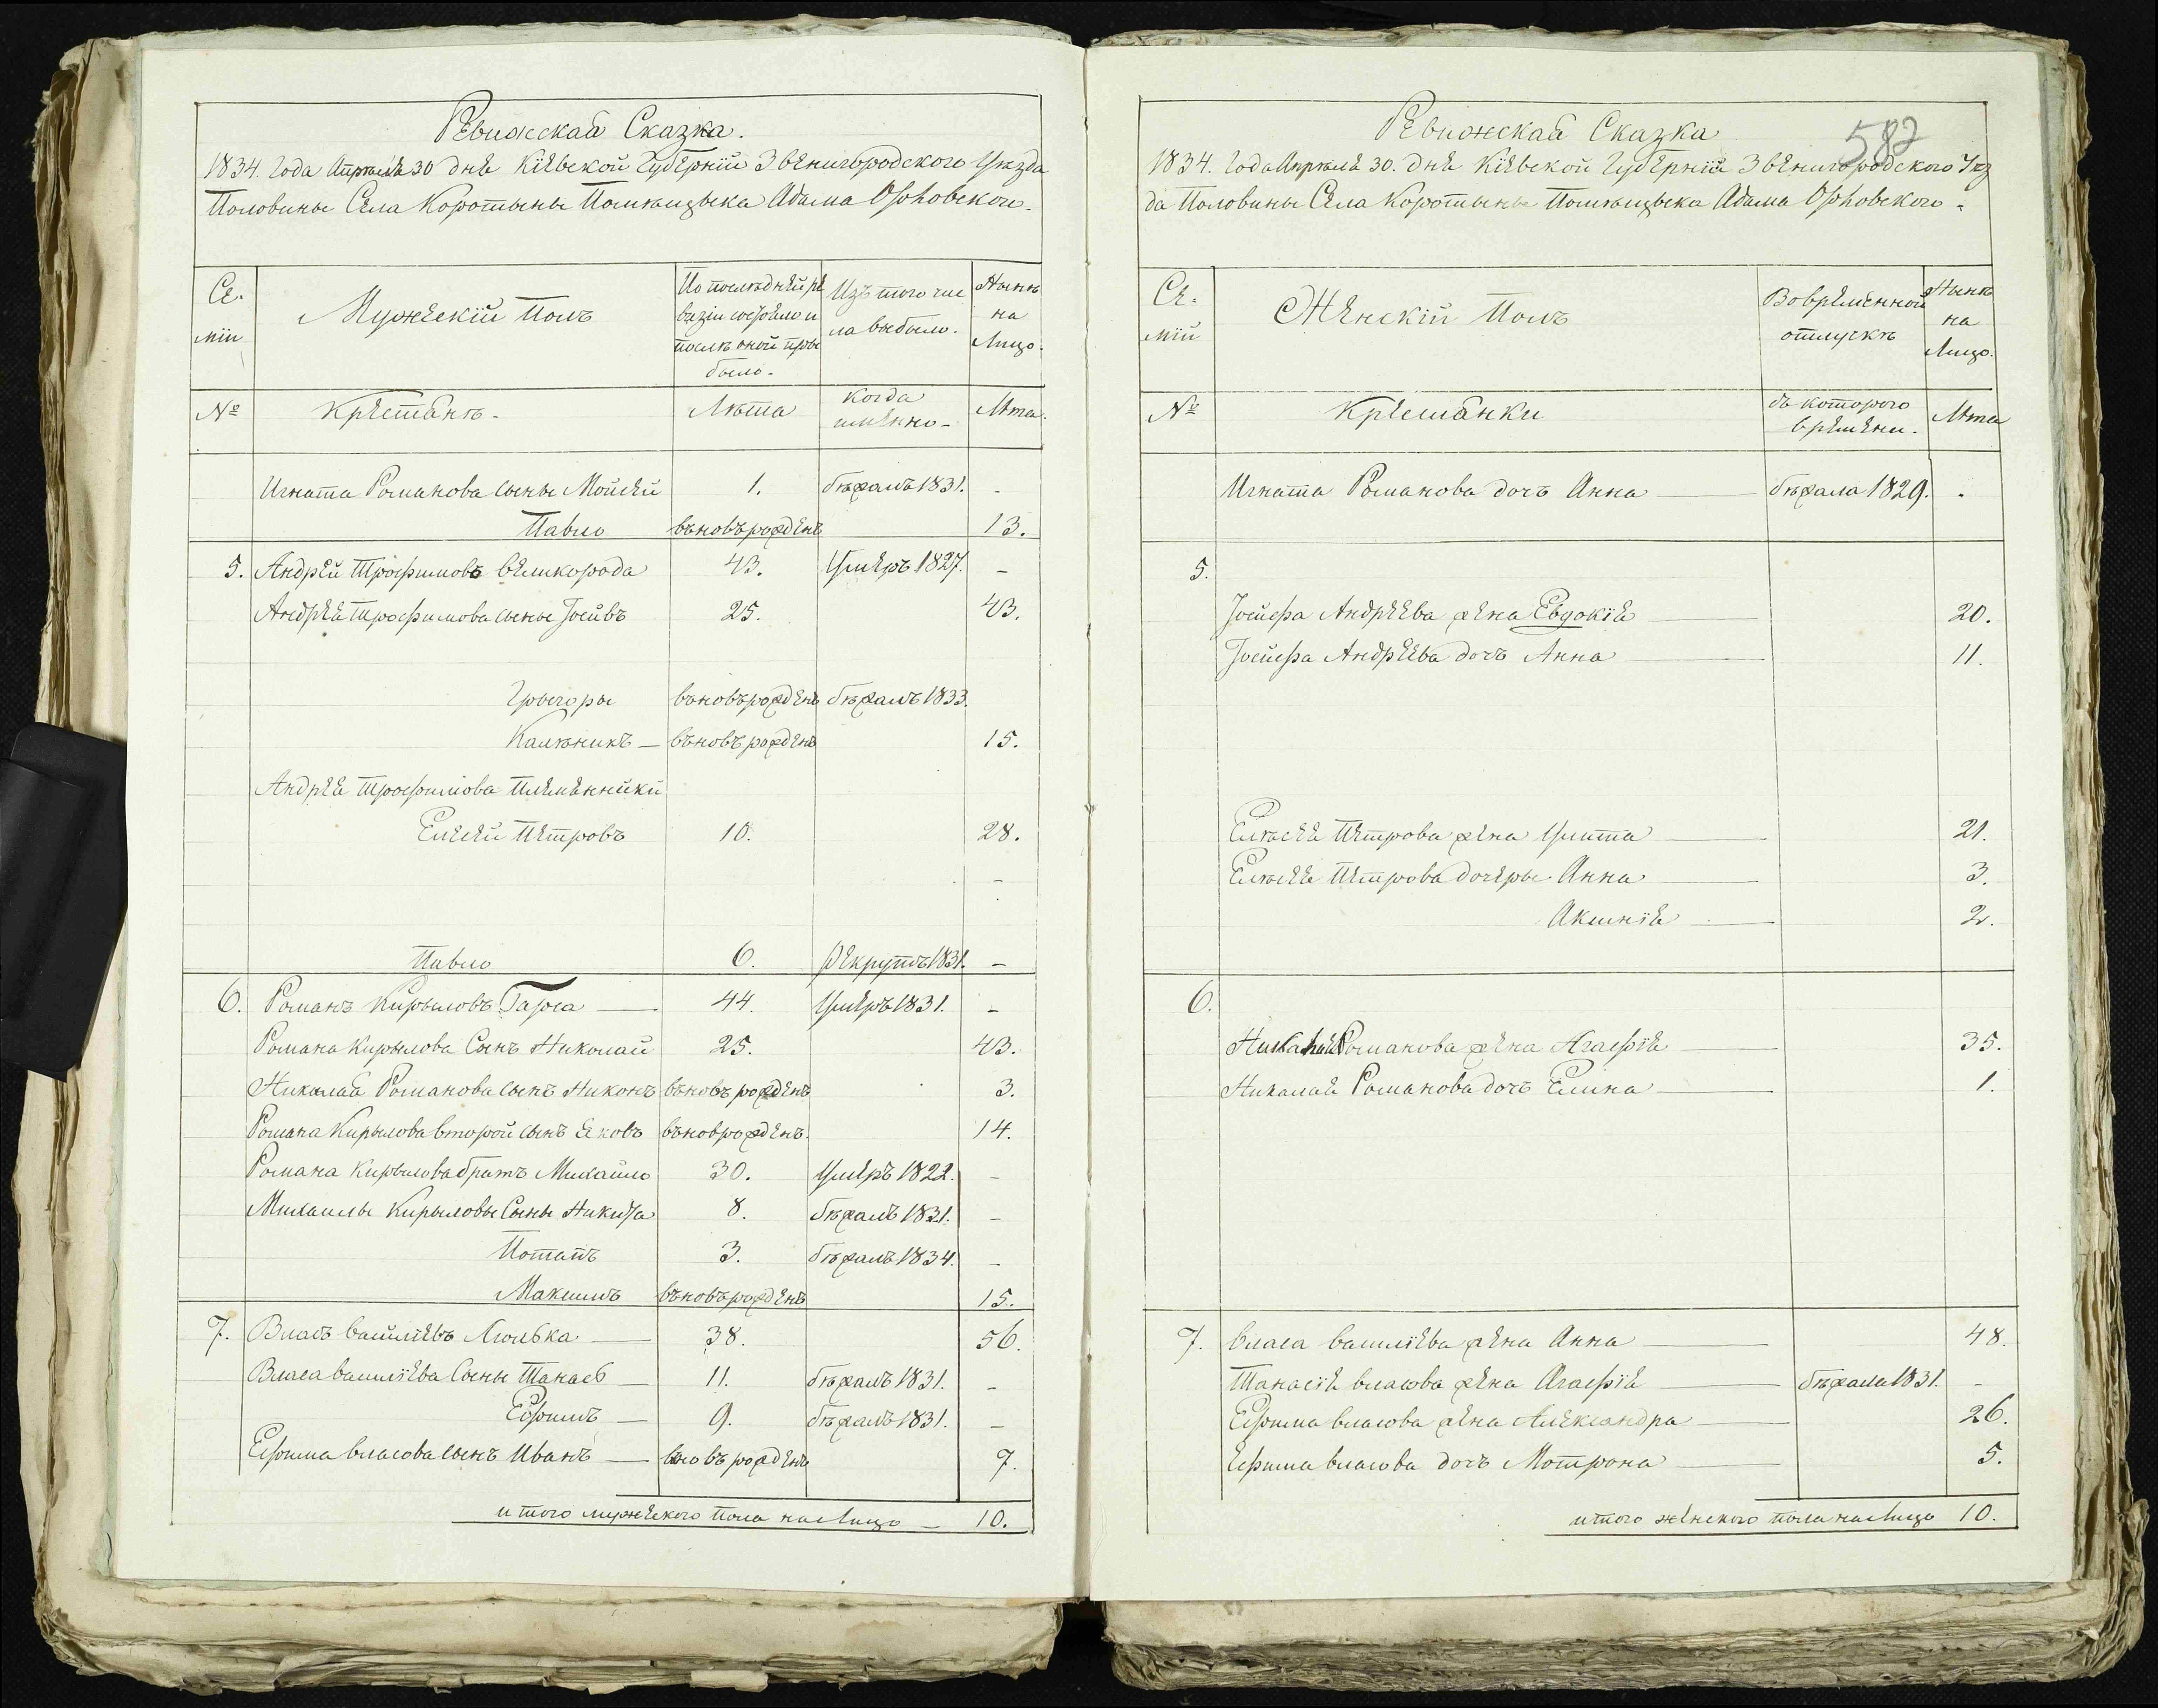 Ревижская Сказка.
1834. Года Апреля 30 дня Кіевской Губерніи Звенигородского Уезда
Половины Села Коротыны Помѣщыка Адама
Се.
міи
Мужескій Полъ
По последней ре
визіи состояло и
послѣ оной пры
было.
Изъ того чис
ла выбыло.
Нынѣ
на
Лицо.
№
Крестянъ.
Лѣта
когда
имянно.
Лѣта.
Игната Романова сыны Мойсей 1. бѣжалъ 1831. -
Павло вьновъ рожденъ 13.
5. Андрей Трофимовъ Великорода 43. Умеръ 1827. -
Андрея Трофимова сыны Іосивъ 25. 43.
Грыгоры вьновъ рожденъ бѣжалъ 1833.
Калѣникъ вьновъ рожденъ 15.
Андрея Трофимова племянники
Елесей Петровъ 10. 28.
-
Павло 6. рекрутъ 1831. -
6. Романъ Кирыловъ Гарса 44. Умеръ 1831. -
Романа Кирылова Сынъ Николай 25. 43.
Николая Романова сынъ Никонъ вьновъ рожденъ 3.
Романа Кирылова второй сынъ Яковъ вьновъ рожденъ. 14.
Романа Кирылова братъ Михайло 30. Умеръ 1822. -
Михаилы Кирыловы Сыны Никита 8. бѣжалъ 1831. -
Потапъ 3. бѣжалъ 1834. -
Максимъ вьновъ рожденъ 15.
7. Власъ Василіевъ Люлька 38. 56.
Власа Василіева Сыны Танасъ 11. бѣжалъ 1831. -
Ефимъ 9. бѣжалъ 1831. -
Ефима Власова сынъ Иванъ вновъ рожденъ 7.
итого мужеского пола налицо 10.
Ревижская Сказка
582
1834. Года Апреля 30. дня Кіевской Губерніи Звенигородского Уез
да Половины Села Коротыны Помѣщыка Адама
Се.
мій
Женскій Полъ
Вовременной
отлускѣ
Нынѣ
на
Лицо.
№
Крестянки
съ которого
времени.
Лѣта
Игната Романова дочъ Анна бѣжала 1829. -
5.
Іосифа Андреева жена Евдокія 20.
Іосифа Андреева дочъ Анна 11.
Елѣсея Петрова жена Улита 21.
Елѣсея Петрова дочеры Анна 3.
Аксинія 2.
6.
Николая Романова жена Агафія 35.
Николая Романова дочъ Елина 1.
7. Власа Василіева жена Анна 48.
Танасія Власова жена Агафія бѣжала 1831. -
Ефима Власова жена Александра 26.
Ефима Власова дочъ Мотрона 5.
итого женского пола налицо 10.